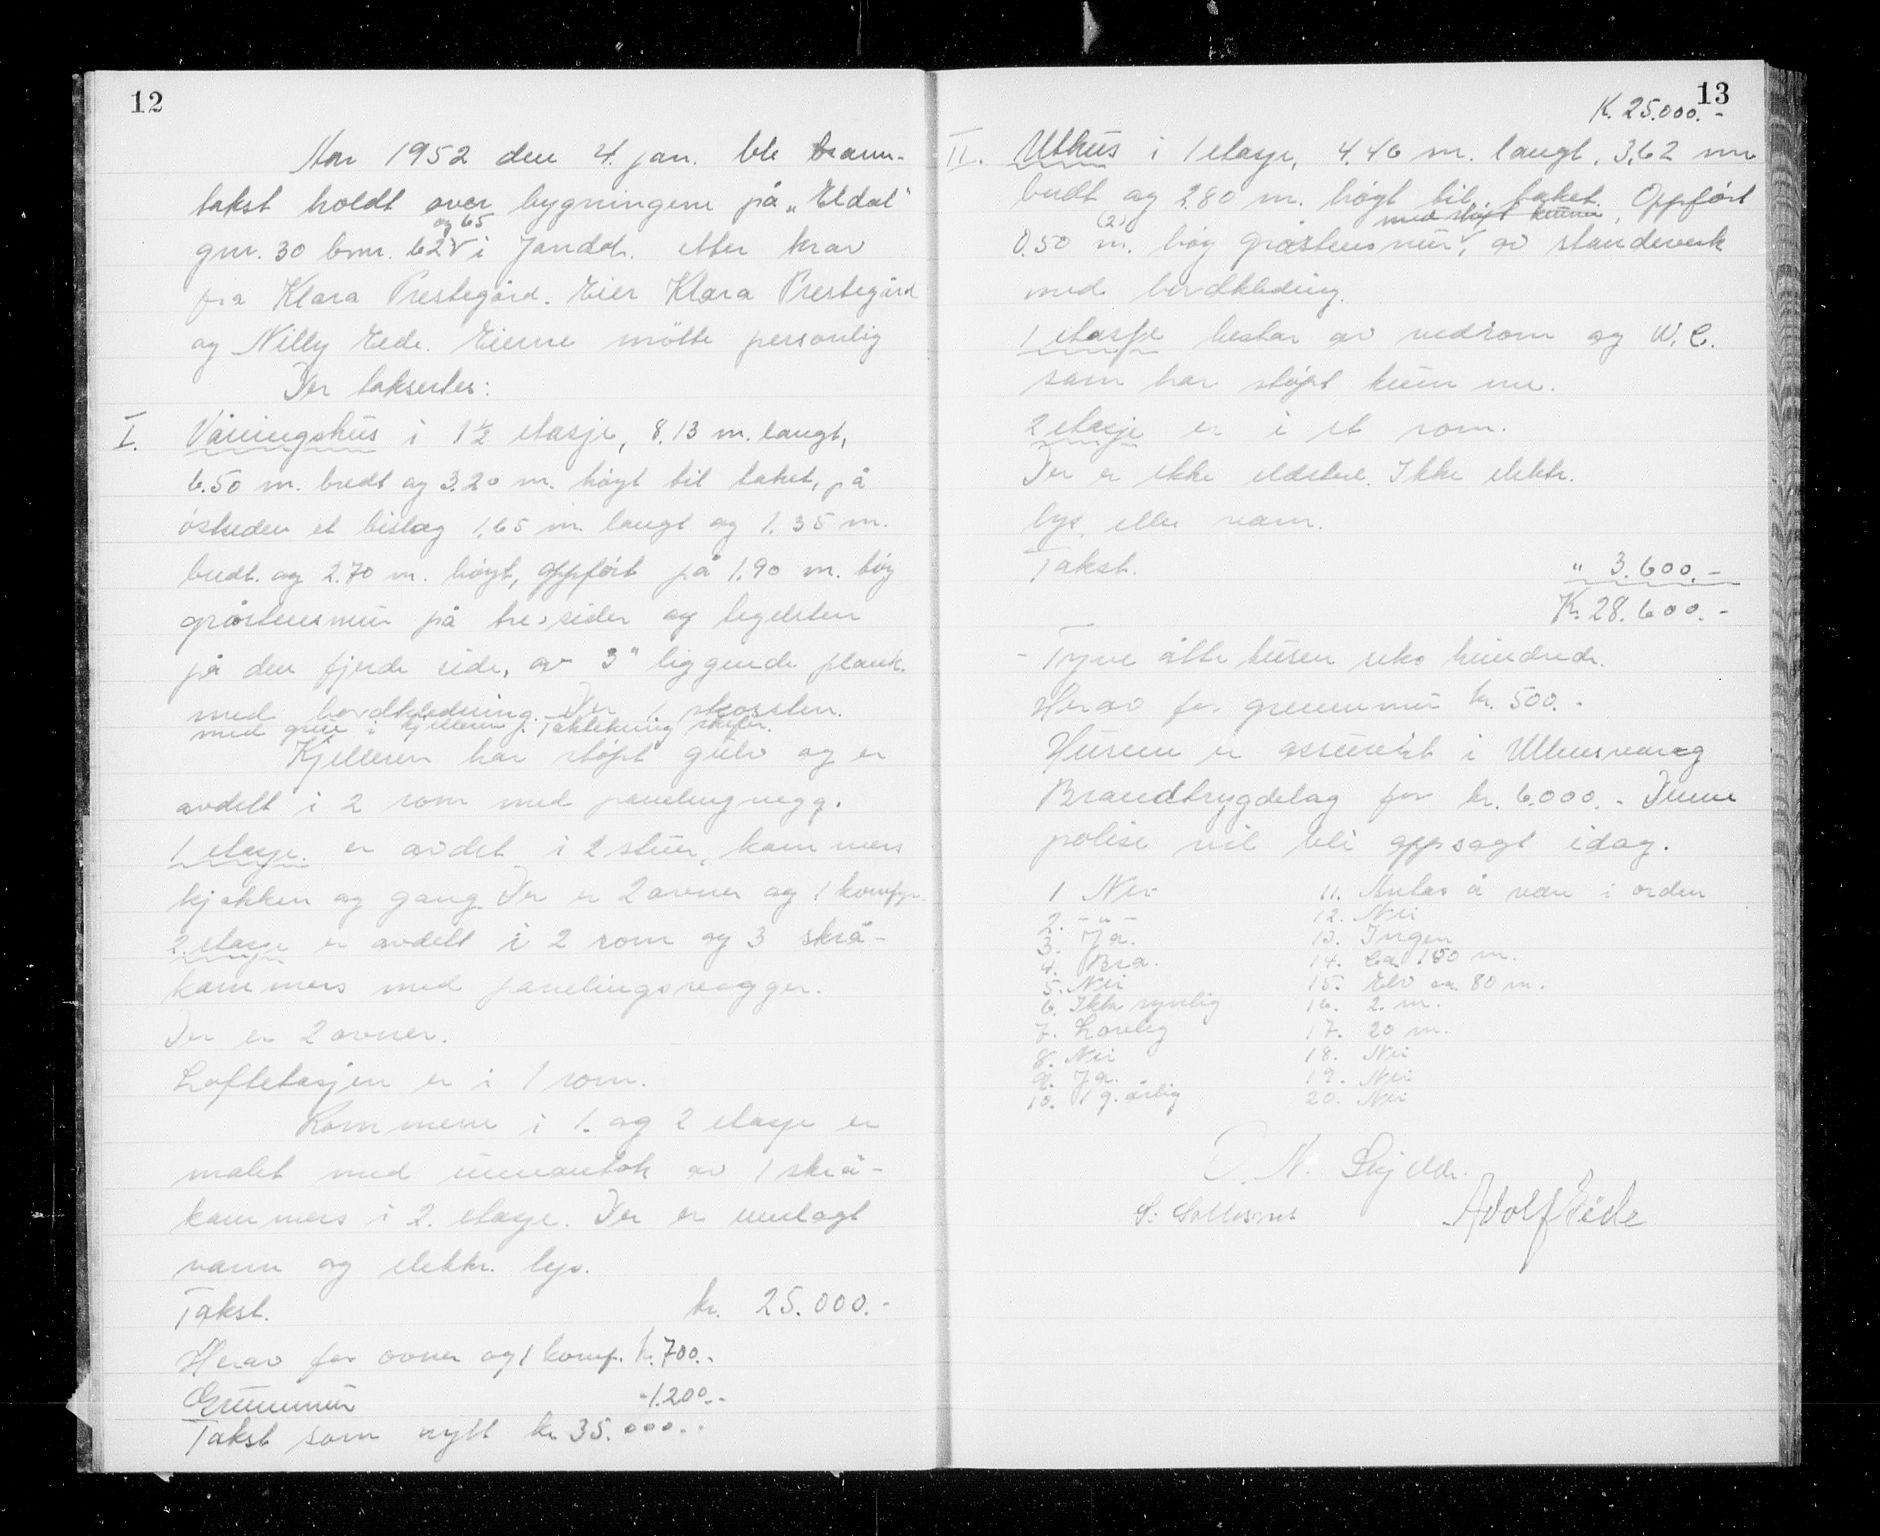 12
Aar 1952 den 4. jan. ble brann-
takst holdt over bygningene på „Eldal"
og 65
gnr. 30 bnr. 62 i Jondal. etter krav
fra Klara Prestegård. Eier Klara Prestegård
og Nilly Eede. Eierne møtte personlig
Der takseertes:
I. Våningshus i 1½ etasje, 8,13 m. langt,
6.50 m. bredt og 3.20 m. høyt til taket, på
østsiden et bislag 1,65 m. langt og 1.35 m.
bredt. og 2.70 m. høyt, oppført på 1.90 m. høy
gråstensmur på tre sider og teglsten
på den fjerde side, av 3" liggende plank.
med bordkledning. Der 1. skorsten.
med grue i kjelleren. Taktekning skifer.
Kjelleren har støpt gulv og er
avdelt i 2 rom med panelingvegg.
1 etasje. er avdelt i 2 stuer, kammers
kjøkken og gang. Der er 2 ovner og 1 komfyr.
2. etasje er avdelt i 2 rom og 3 skrå-
kammers med panelingsvegger.
Der er 2 ovner.
Loftetasjen er i 1 rom.
Rommene i 1. og 2 etasje er
malt med unnantak av 1 skrå-
kammers i 2. etasje. Der er innlagt
vann og elektr. lys.
Takst. kr. 25.000.-
Herav for ovner og 1 komf. kr. 700.-
Grunnmur - 1.200.-
Takst som nytt kr 35.000.-
13
K. 25.000.-
II. Uthus i 1 etasje, 4.46 m. langt, 3,62 m
bredt og 2.80 m. høyt til taket. Oppført
(2) med støpt kumme
0.50 m. høy gråstensmur, av standverk
med bordkledning.
1 etasje består av vedrom og W.C.
som har støpt kumme.
2 etasje er i et rom.
Der er ikke eldsted. Ikke elektr.
lys, eller vann.
Takst. " 3.600.-
Kr. 28.600.-
- Tyve åtte tusen seks hundrede.
Herav for grunnmur kr. 500.-
Husene er assurert i
Brandtrygdelag for kr. 6.000.- Denne
polise vil bli oppsagt idag.
1 Nei
2. - " -
3. Ja.
4. Bra.
5. Nei
6. Ikke synlig
7. Lovlig
8. Nei
9. Ja.
10. 1 g. årlig
11. Antas å være i orden
12. Nei
13. Ingen
14. Ca 150 m.
15. Elv ca. 80 m.
16. 2. m.
17. 20 m.
18. Nei
19. Nei
20. Nei
N.
S.
Adolf Eide